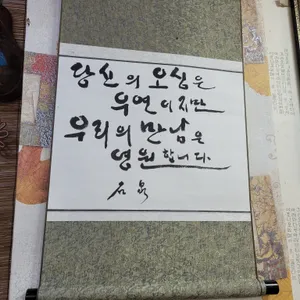 당신의 오심은
우연이지만
우리의 만남은
영원합니다.